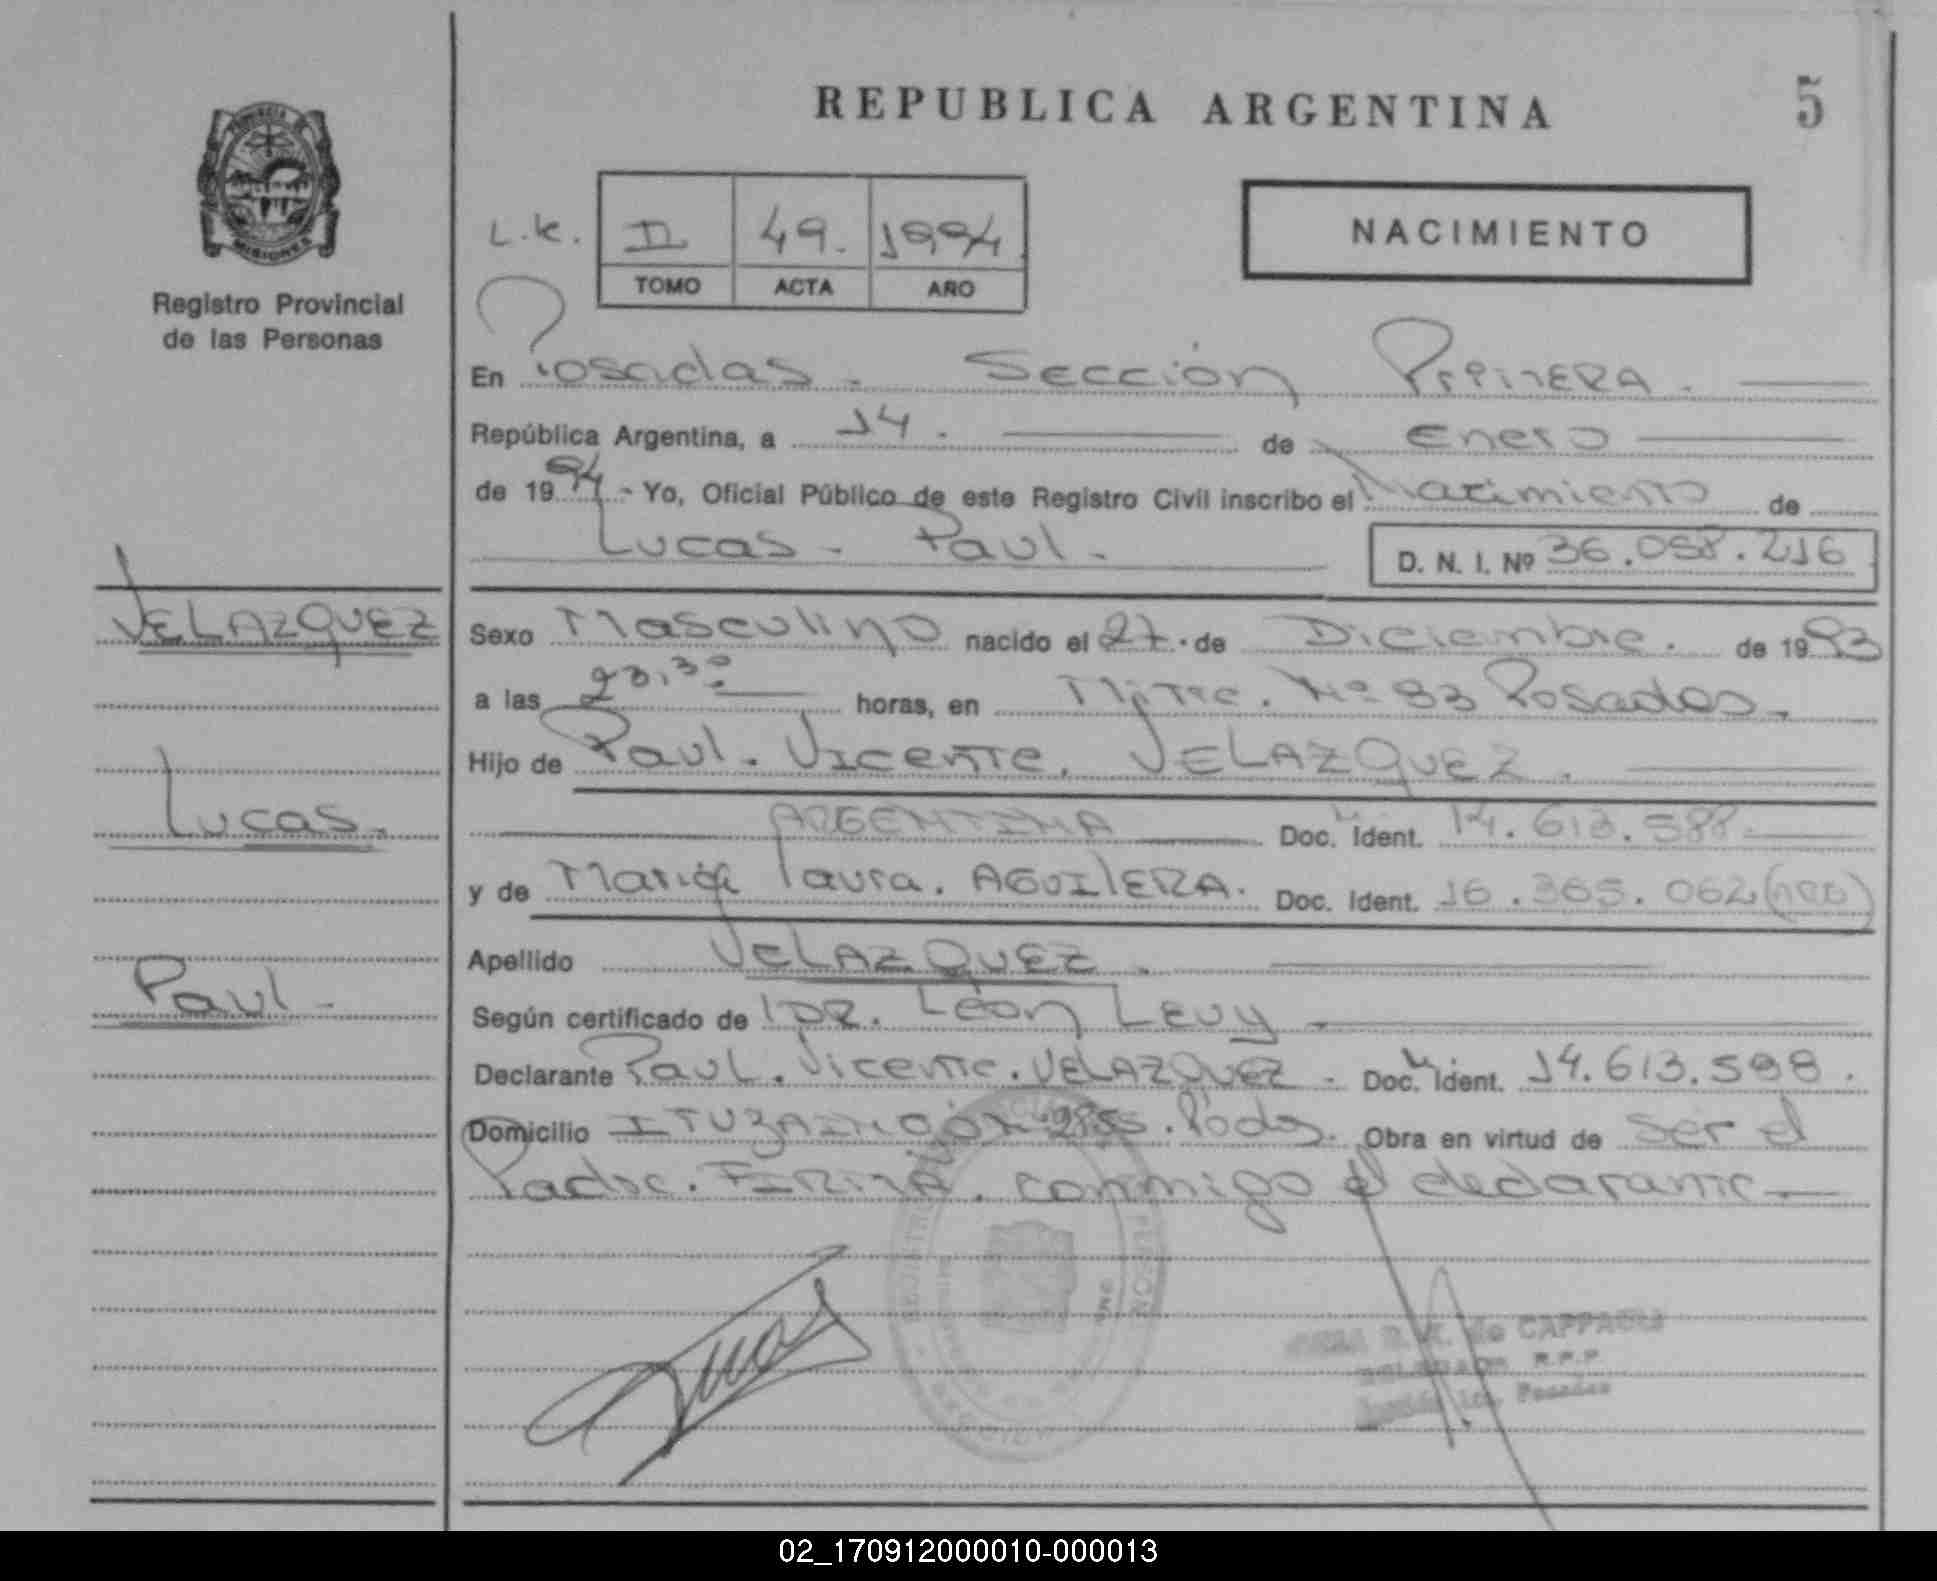 REPUBLICA ARGENTINA
5
PROVINCIA DE MISIONES
Registro Provincial
de las Personas
NACIMIENTO
L.K. II 49. 1994
TOMO ACTA AÑO
En Posadas. Sección Primera.
República Argentina, a 14. de Enero
de 1994 - Yo, Oficial Público de este Registro Civil inscribo el Nacimiento de
Lucas - Paul.
D. N. I. Nº 36.058.216
VELAZQUEZ
Lucas.
Paul -
Sexo Masculino nacido el 27. de Diciembre. de 1993
a las 23,30 horas, en Mitre. Nº 93 Posadas.
Hijo de Paul. Vicente. VELAZQUEZ.
ARGENTINA Doc. Ident. 14.613.598
y de María Laura. AGUILERA. Doc. Ident. 16.365.062
Apellido VELAZQUEZ.
Según certificado de DR. León Levy
Declarante Paul. Vicente. VELAZQUEZ. Doc. Ident. 14.613.598.
Domicilio ITUZAINGÓN Pdas. Obra en virtud de ser el
Padre. FIRMA. conmigo el declarante
de CAPPAGLI
R.P.P.
Posadas
02_170912000010-000013